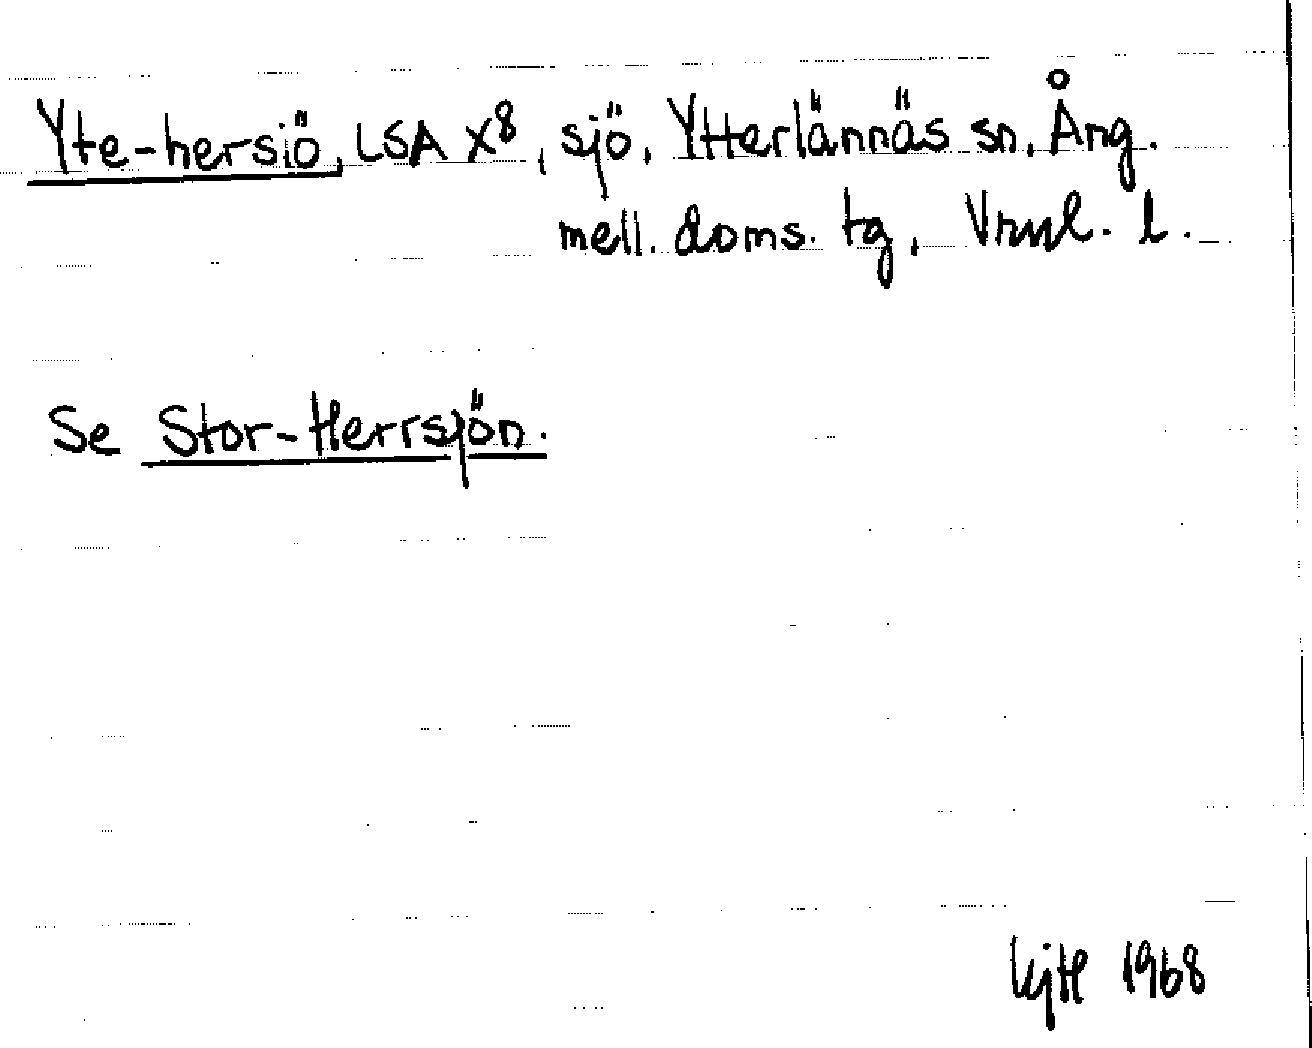 Yte-hersiö, LSA X8, sjö, Ytterlännäs sn, Ång.
mell. doms. tg, Vrnl. l.
Se Stor-Herrsjön.
1968